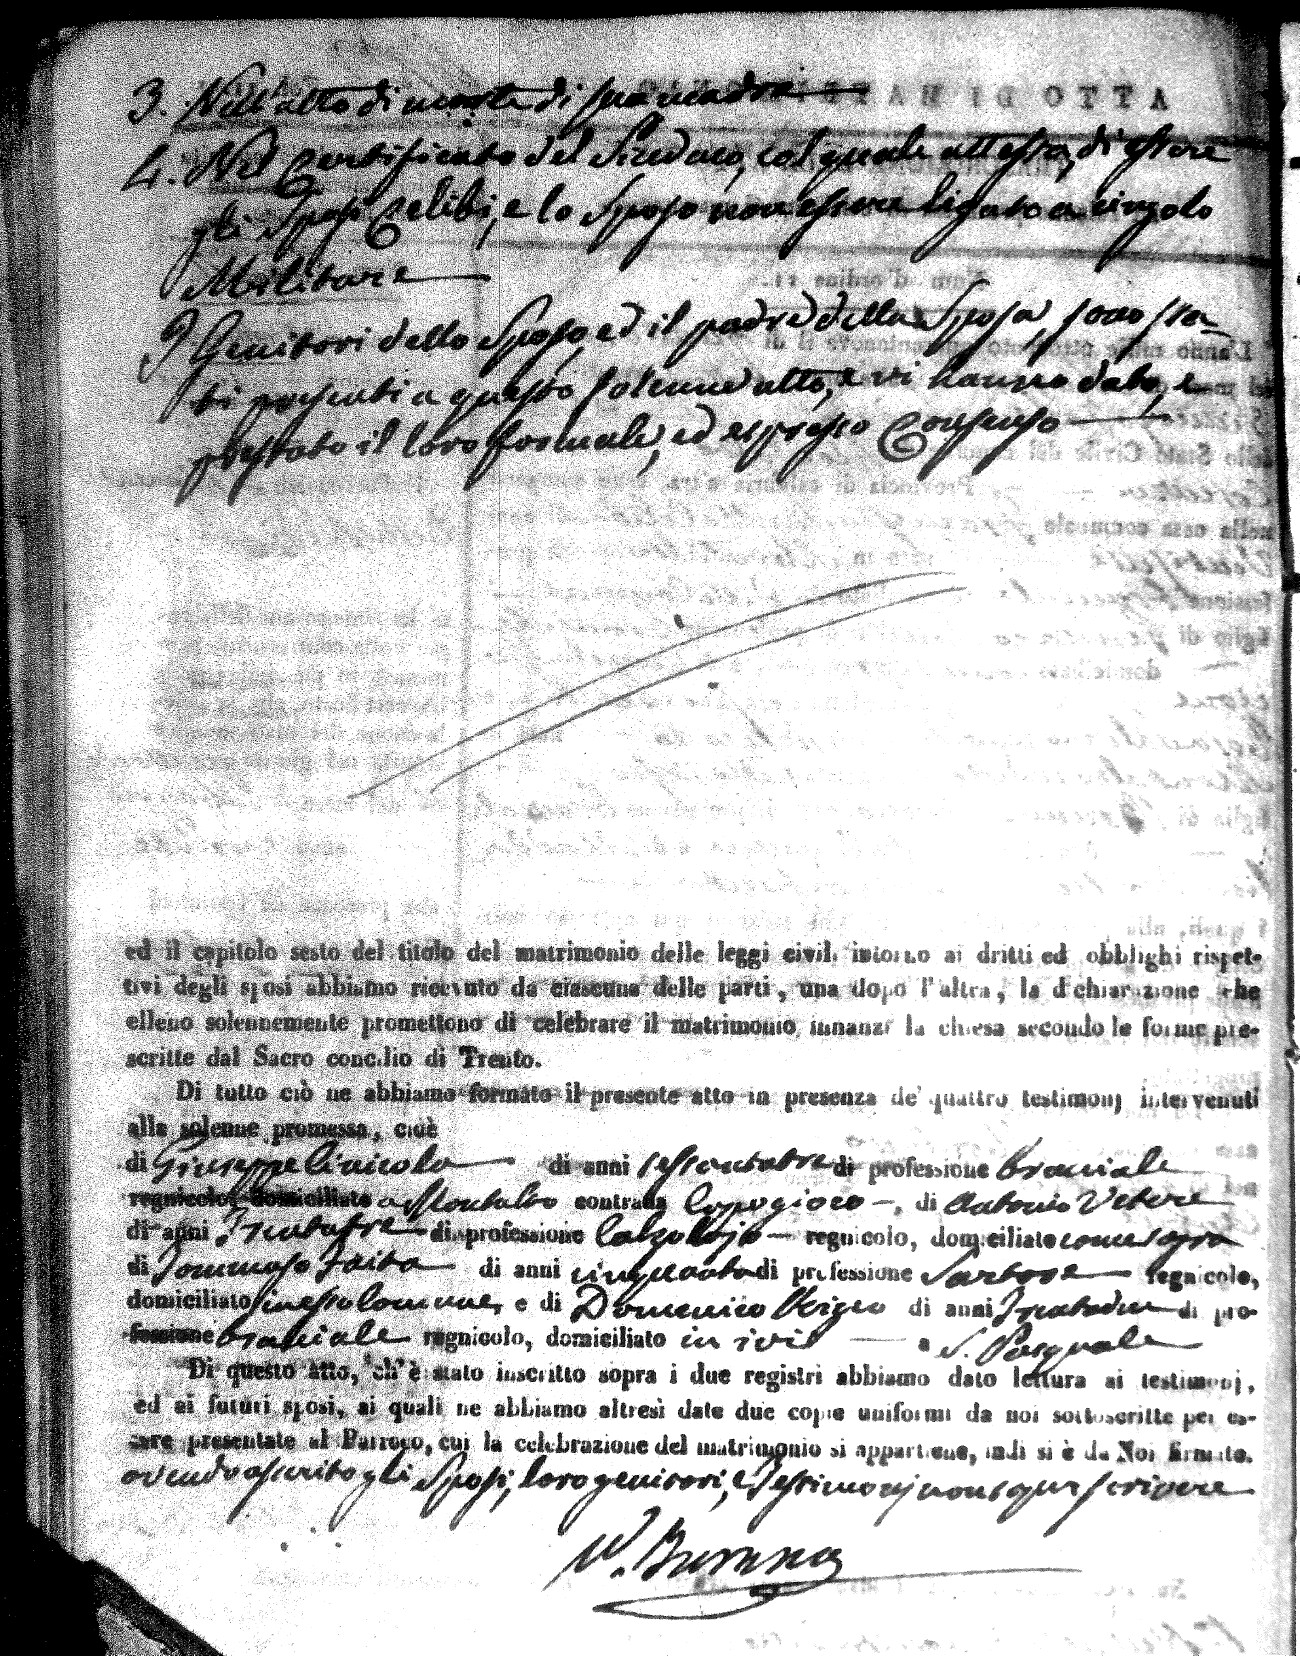 3. Nell'atto di morte di sua madre
4. Nel Certificato del Sindaco, col quale attesta, di essere
gli Sposi Celibi, e lo Sposo non essere ligato a vincolo
Militare
I Genitori dello Sposo, ed il padre della Sposa, sono sta-
ti presenti a questo solenne atto, e vi hanno dato, e
prestato il loro formale, ed espresso Consenso
ed il capitolo sesto del titolo del matrimonio delle leggi civili intorno ai dritti ed obblighi rispet-
tivi degli sposi abbiamo ricevuto da ciascuna delle parti, una dopo l'altra, la dichiarazione che
elleno solennemente promettono di celebrare il matrimonio innanzi la chiesa secondo le forme pre-
scritte dal Sacro concilio di Trento.
Di tutto ciò ne abbiamo formato il presente atto in presenza de' quattro testimonj intervenuti
alla solenne promessa, cioè
di Giuseppe di anni sessantatre di professione braciale
regnicolo, domiciliato a Montalto contrada , di Antonio Vetere
di anni Trentatre di professione Calzolajo regnicolo, domiciliato come sopra
di Tommaso Zaita di anni cinquanta di professione Sartore regnicolo,
domiciliato in esso Comune, e di Domenico di anni Trentadue di pro-
fessione braciale regnicolo, domiciliato in ivi a S. Pasquale
Di questo atto, ch'è stato inscritto sopra i due registri abbiamo dato lettura ai testimonj,
ed ai futuri sposi, ai quali ne abbiamo altresì date due copie uniformi da noi sottoscritte per es-
sere presentate al Parroco, cui la celebrazione del matrimonio si appartiene, indi si è da Noi firmato.
avendo asserito gli Sposi, loro genitori, e Testimonj non saper scrivere